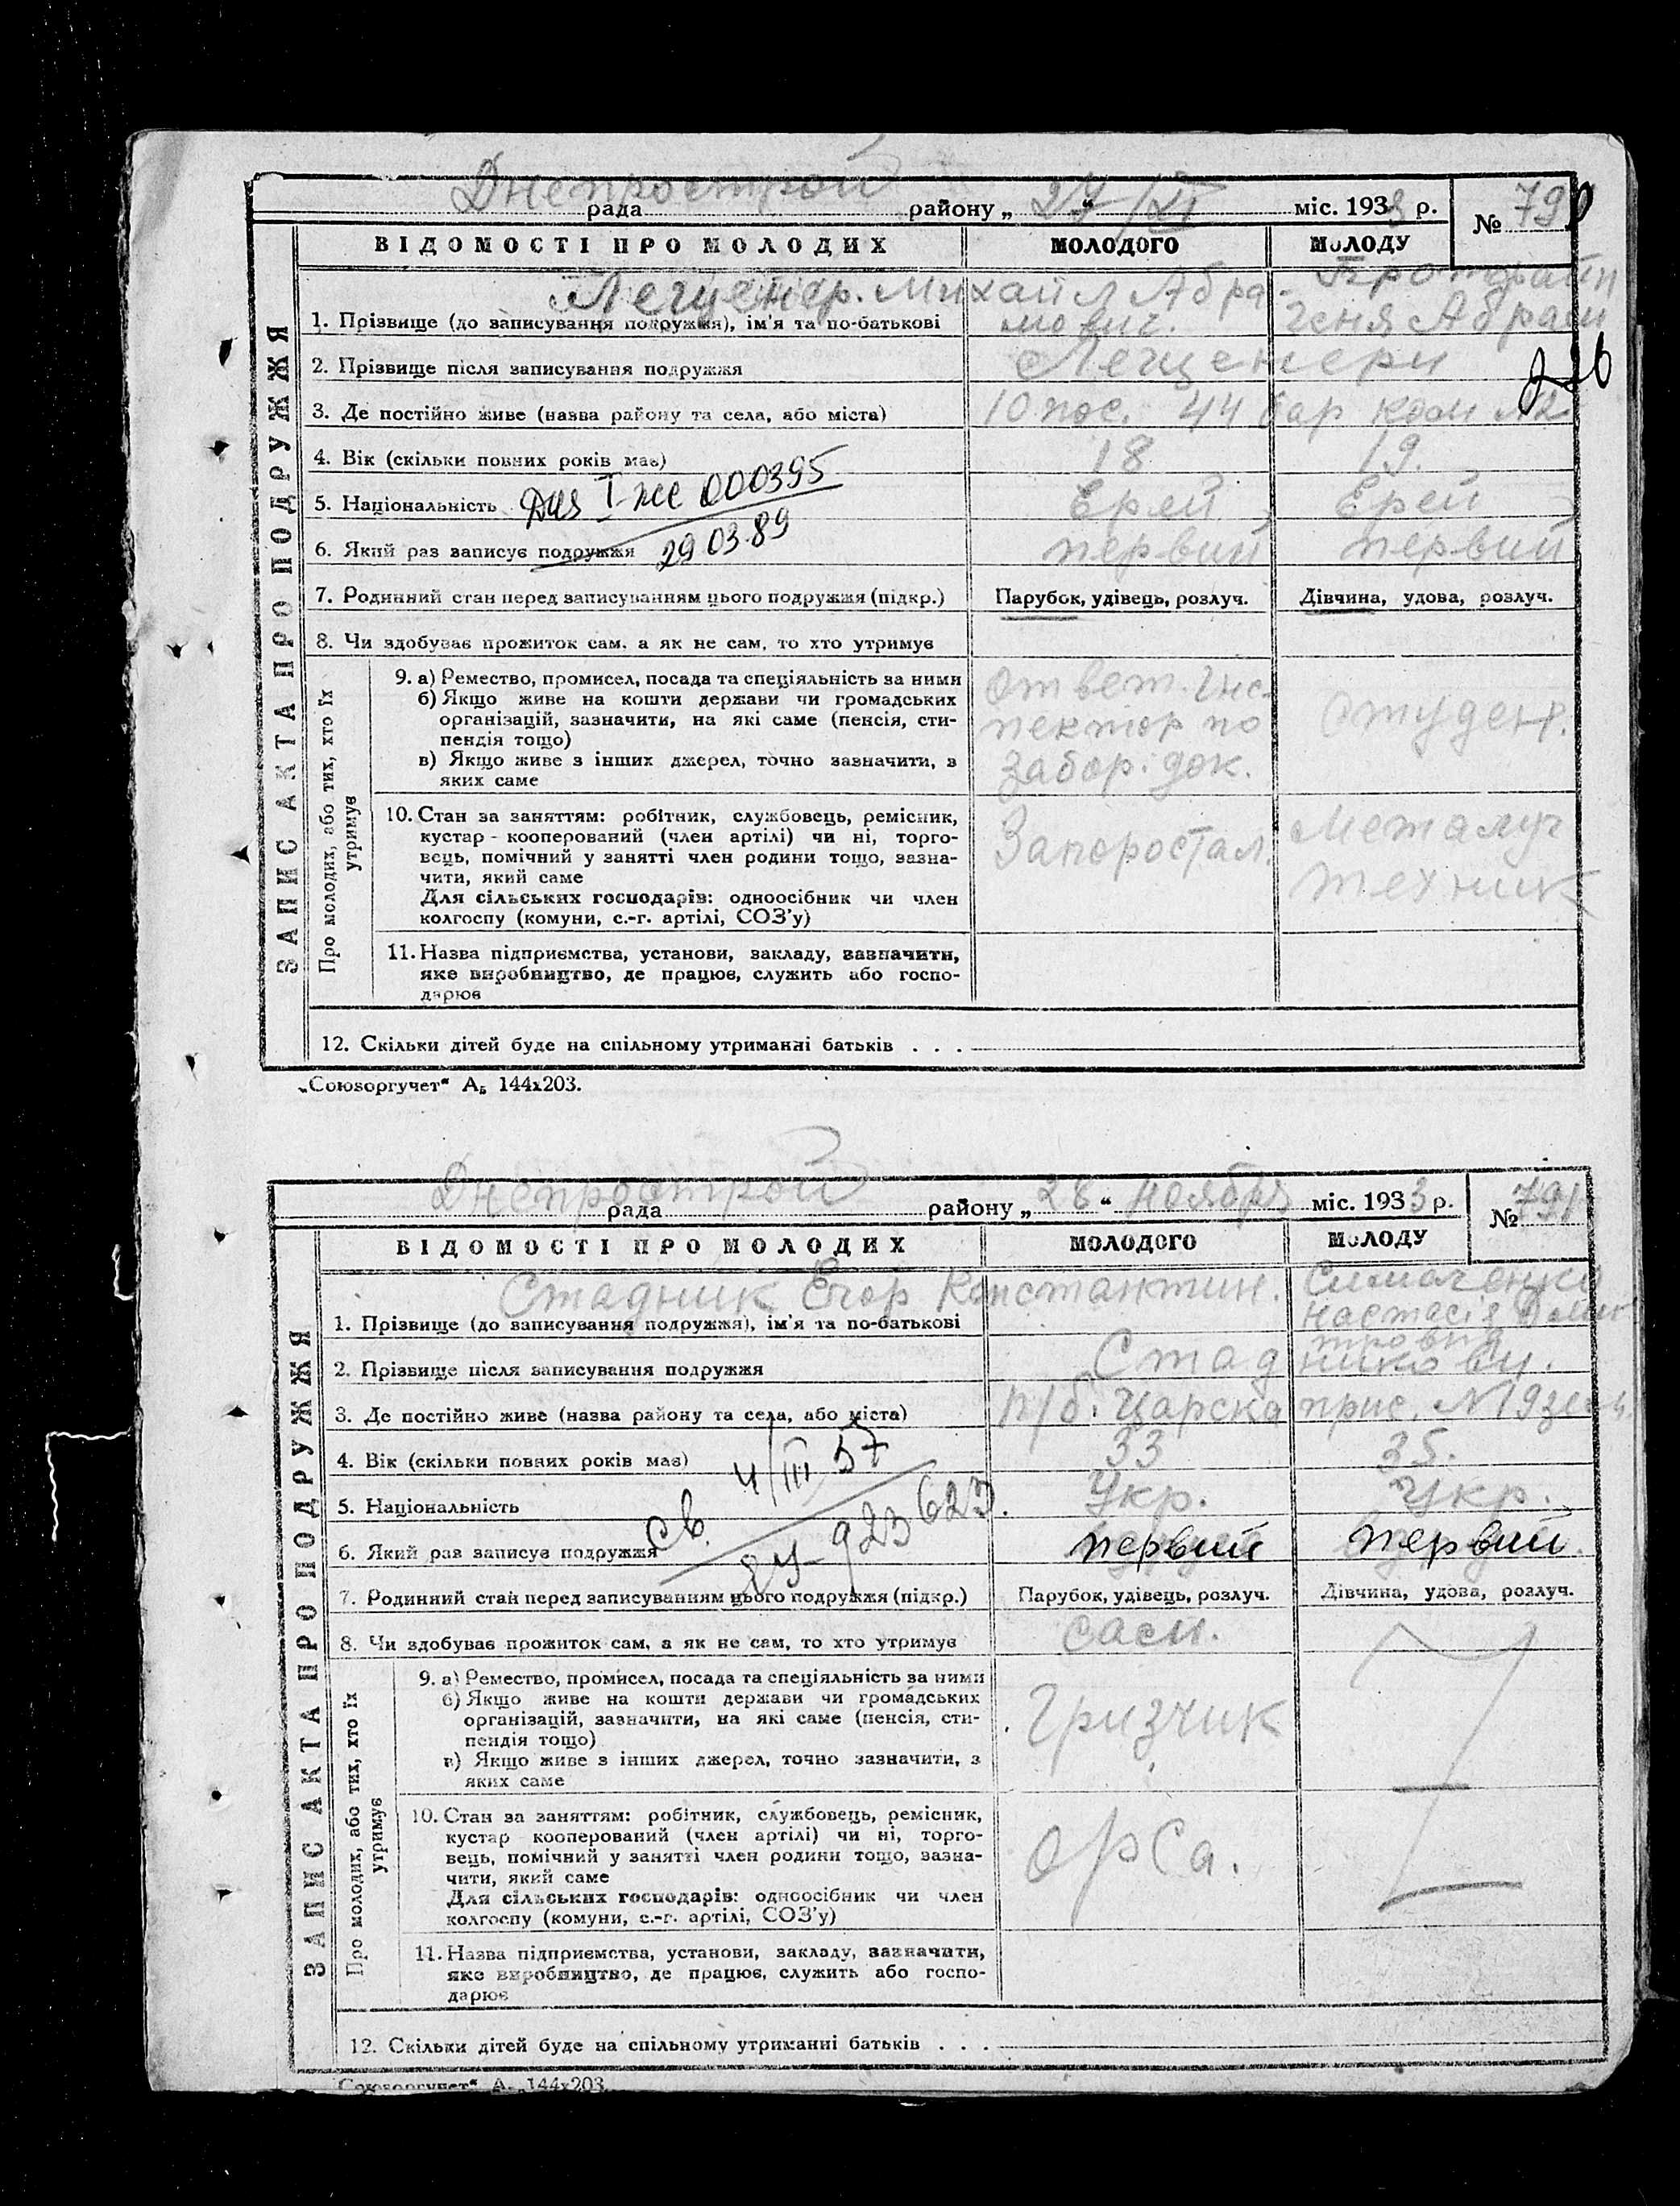 Днепрострой
рада районu „ 27 “ /XI міс. 1933 р. № 790
ВІДОМОСТІ ПРО МОЛОДИХ МОЛОДОГО МОЛОДУ
ЗАПИС АКТА ПРО ПОДРУЖЖЯ
Михаил Абра-
1. Прізвище (до записування подружжя), ім'я та по-батькові мович. Геня Абрам
2. Прізвище після записування подружжя
3. Де постійно живе (назва району та села, або міста) 10 пос. 44 бар ком №2
4. Вік (скільки повних років має) 18 19.
5. Національність І-же 000395 Ерей Ерей
6. Який раз записує подружжя 29 03.89 первий первий
7. Родинний стан перед записуванням цього подружжя (підкр.) Парубок, удівець, розлуч. Дівчина, удова, розлуч.
8. Чи здобуває прожиток сам, а як не сам, то хто утримує
Про молодих, або тих, хто їх утримує
9. а) Ремество, промисел, посада та спеціяльність за ними
б) Якщо живе на кошти держави чи громадських
організацій, зазначити, на які саме (пенсія, сти-
пендія тощо)
в) Якщо живе з інших джерел, точно зазначити, з
яких саме
Ответ. Инс-
пектор по
забор. док.
Студен.
10. Стан за заняттям: робітник, службовець, ремісник,
кустар - кооперований (член артілі) чи ні, торго-
вець, помічний у занятті член родини тощо, зазна-
чити, який саме
Для сільських господарів: одноосібник чи член
колгоспу (комуни, с.-г. артілі, СОЗ'у)
Запоростал.
Металург
техник
11. Назва підприємства, установи, закладу, зазначити,
яке виробництво, де працює, служить або госпо-
дарює
12. Скільки дітей буде на спільному утриманні батьків . . .
„Союзоргучет“ А₅ 144х203.
Днепрострой
рада району „ 28 “ ноября міс. 1933 р. № 791
ВІДОМОСТІ ПРО МОЛОДИХ МОЛОДОГО МОЛОДУ
ЗАПИС АКТА ПРО ПОДРУЖЖЯ
Стадник Егор Константин.
1. Прізвище (до записування подружжя), ім'я та по-батькові Настасія Дми
тровна
2. Прізвище після записування подружжя Стадникови.
3. Де постійно живе (назва району та села, або міста) п/б. Царска прис. №19
4. Вік (скільки повних років має) 33 35.
4/III 57
5. Національність Укр. Укр.
св. 923623.
6. Який раз записує подружжя первий первий
7. Родинний стан перед записуванням цього подружжя (підкр.) Парубок, удівець, розлуч. Дівчина, удова, розлуч.
8. Чи здобуває прожиток сам, а як не сам, то хто утримує сам.
Про молодих, або тих, хто їх утримує
9. а) Ремество, промисел, посада та спеціяльність за ними
б) Якщо живе на кошти держави чи громадських
організацій, зазначити, на які саме (пенсія, сти-
пендія тощо)
в) Якщо живе з інших джерел, точно зазначити, з
яких саме
Грузчик
10. Стан за заняттям: робітник, службовець, ремісник,
кустар кооперований (член артілі) чи ні, торго-
вець, помічний у занятті член родини тощо, зазна-
чити, який саме
Для сільських господарів: одноосібник чи член
колгоспу (комуни, с.-г. артілі, СОЗ'у)
Орса.
11. Назва підприємства, установи, закладу, зазначити,
яке виробництво, де працює, служить або госпо-
дарює
12. Скільки дітей буде на спільному утриманні батьків . . .
„Союзоргучет“ А₅ 144х203.